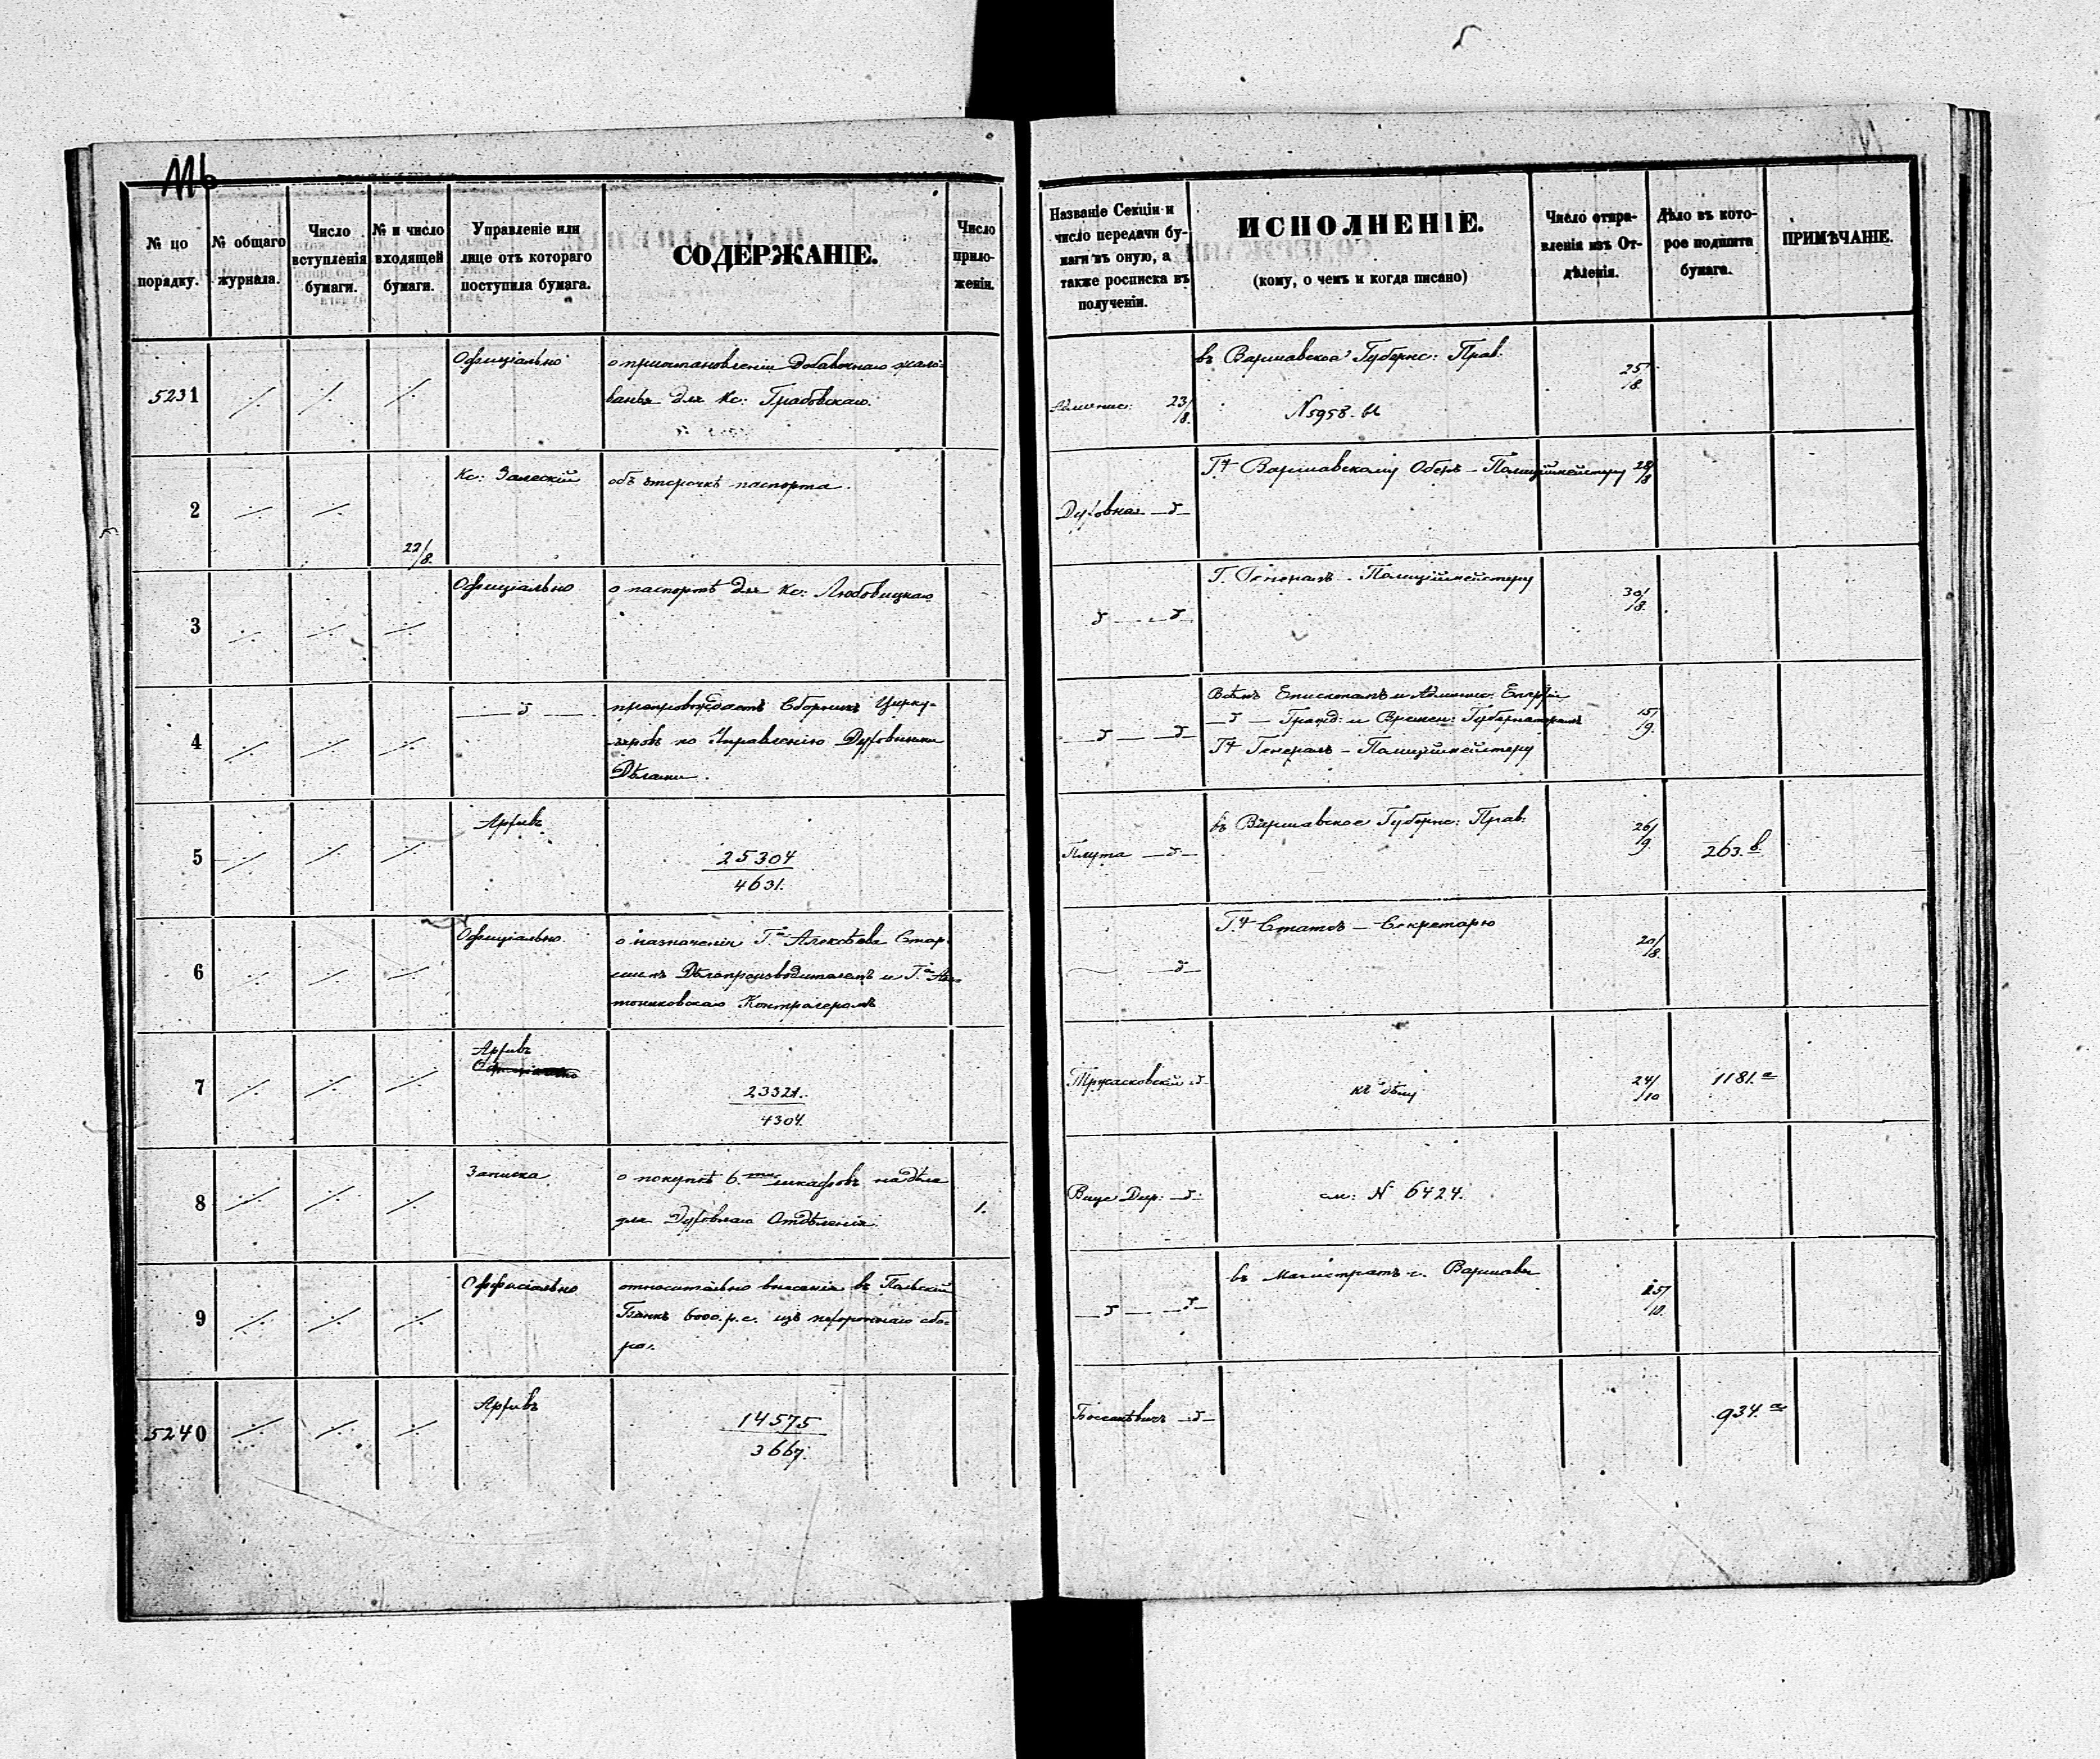 № по порядку.
№ общаго журнала.
Число вступленія бумаги.
№ и число входящей бумаги.
Управленіе или лице отъ котораго поступила бумага.
СОДЕРЖАНІЕ.
Число приложеній.
Названіе Секціи и число передачи бумаги въ оную, а также росписка въ полученіи.
ИСПОЛНЕНІЕ.
(кому, о чемъ и когда писано)
Число отправленія изъ Отдѣленія.
Дѣло въ которое подшита бумага.
ПРИМѢЧАНІЕ.
5231
Официально
о приостановленіи добавочнаго жало-
ванья для Кс: Грабовскаго.
23/8.
въ Варшавское Губернс: Прав:
N 5958.
25/8.
2
22/8.
Кс: Залескій
объ отсрочкѣ паспорта.
Духовная —д—
Г. Варшавскому Оберъ-Полицiймейстеру
28/8
3
Официально
о паспортѣ для Кс: Любовицкаго
д — д
Г. Генералъ-Полицiймейстеру
30/8.
4
— д —
препровождаетъ Сборникъ Цирку-
ляровъ по Управленію Духовными
Дѣлами.
— д — д
Всѣмъ Епископамъ и Админис: Епархій
— д — Гражд: и Времен: Губернаторамъ
Г. Генералъ-Полицiймейстеру
15/9.
5
Архивъ
25304
4631.
Плута —д—
въ Варшавское Губернс: Прав:
26/9.
263. в.
6
Официально
о назначеніи Г. Алексѣева Стар-
шимъ Дѣлопроизводителемъ и Г.
Контролеромъ
—д—
Г. Статсъ-Секретарю
20/8.
7
Архивъ
4304.
—д—
къ дѣлу
24/10
1181. а
8
Записка
о покупкѣ 6. ти шкафовъ на дѣла
для Духовнаго Отдѣленія.
1.
Вице Дир: —д—
см: N 6424.
9
Оффиціально
относительно внесенія въ Польскій
Банкъ 6000 р. с. изъ
— д — д —
въ Магистратъ г. Варшавы
5240
Архивъ
14575
3667.
—д—
934. а